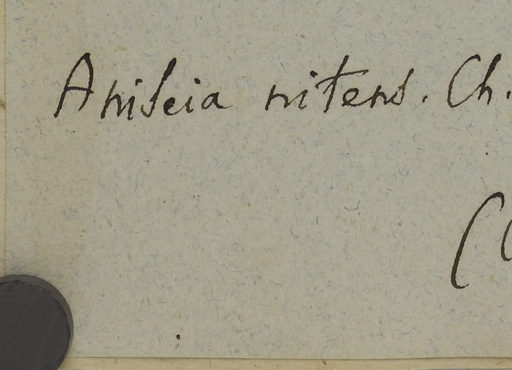 Aniseia nitens. Ch.
(